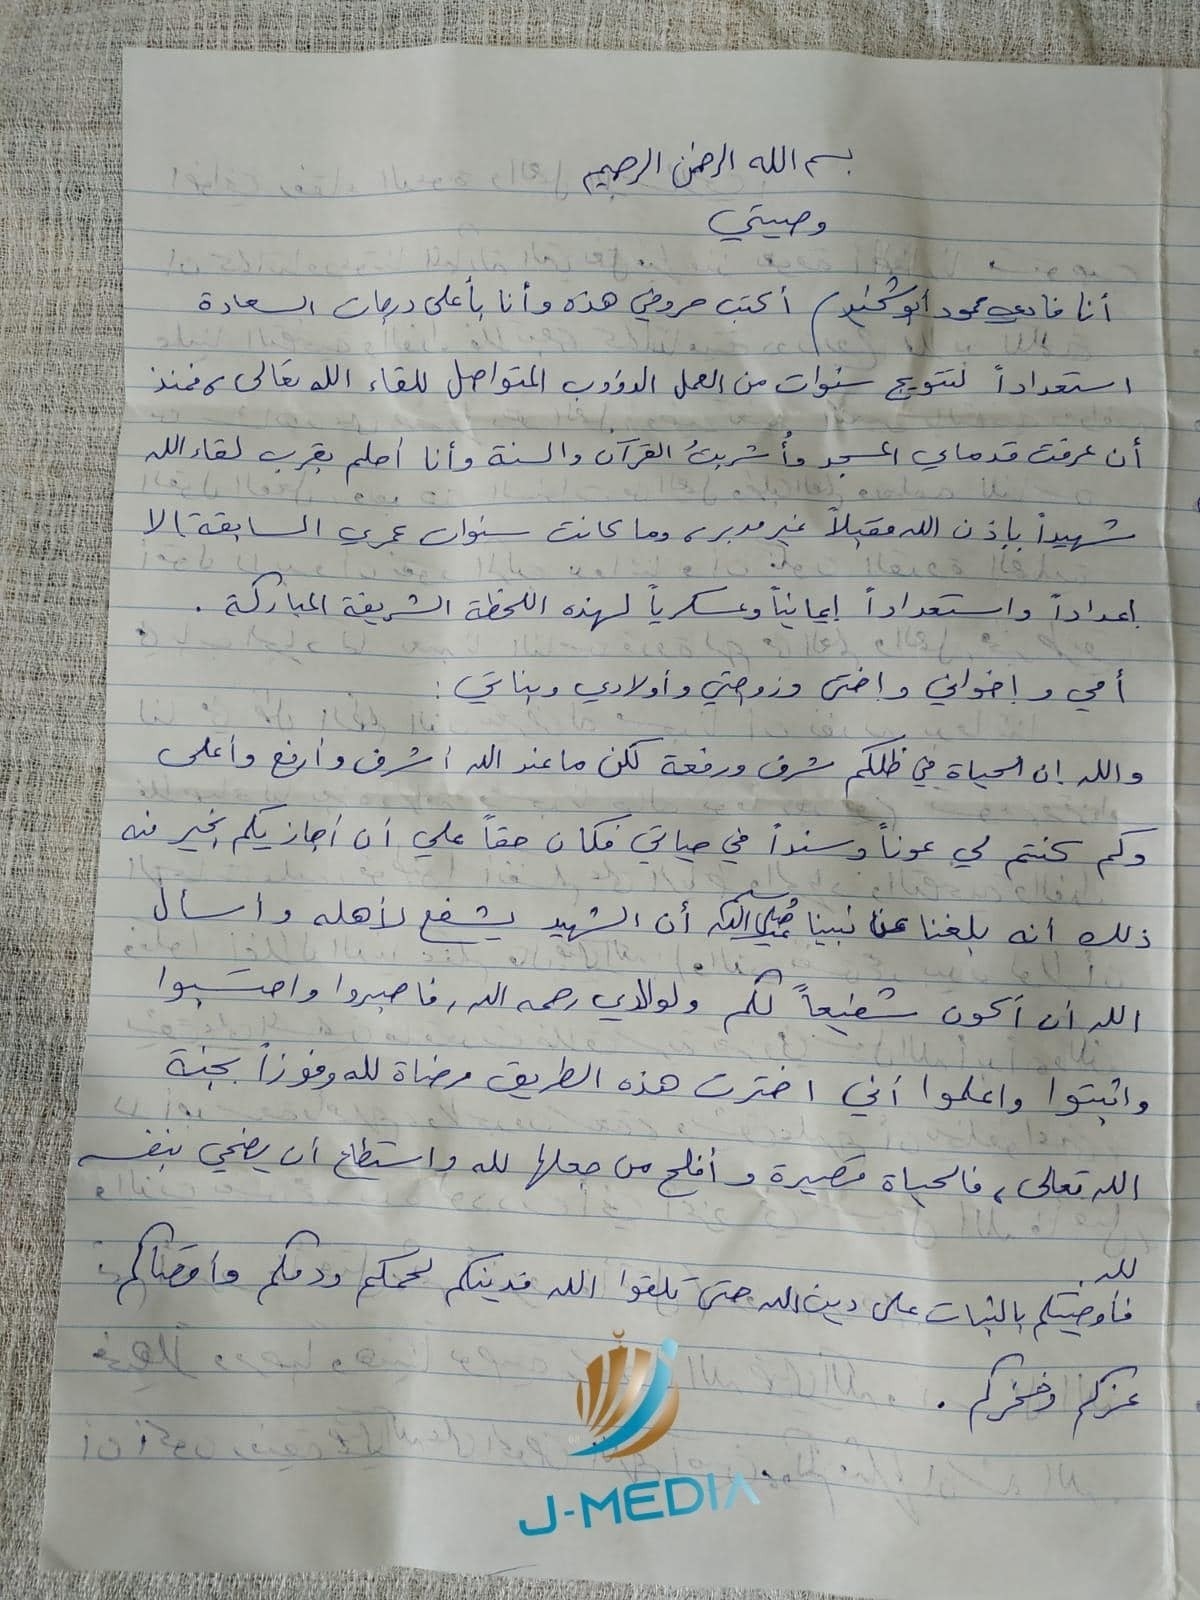 بسم الله الرحمن الرحيم
وصيتي
أنا فادي محمود أبو شخيدم أكتب حروفي هذه وأنا بأعلى درجات السعادة
استعداداً لتتويج سنوات من العمل الدؤوب المتواصل للقاء الله تعالى، فمنذ
أن عرفت قدماي المسجد وأُشربتُ القرآن والسنة وأنا أحلم بقرب لقاء الله
شهيداً بإذن الله مقبلاً غير مدبر، وما كانت سنوات عمري السابقة إلا
إعداداً واستعداداً إيمانياً وعسكرياً لهذه اللحظة الشريفة المباركة.
أمي وإخواني وأختي وزوجتي وأولادي وبناتي:
والله إن الحياة في ظلكم شرف ورفعة لكن ما عند الله أشرف وأرفع وأعلى
وكم كنتم لي عوناً وسنداً في حياتي فكان حقاً علي أن أجازيكم بخير منه
ذلك أنه بلغنا عن نبينا صلى الله عليه وسلم أن الشهيد يشفع لأهله وأسأل
الله أن أكون شفيعاً لكم ولوالدي رحمه الله، فاصبروا واحتسبوا
واثبتوا واعلموا أني اخترت هذه الطريق مرضاة لله وفوزاً بجنة
الله تعالى، فالحياة قصيرة وأفلح من جعلها لله واستطاع أن يضحي بنفسه
لله.
فأوصيتكم بالثبات على دين الله حتى تلقوا الله فدينكم لحمكم ودمكم وأقصاكم
عزكم وفخركم.
J-MEDIA